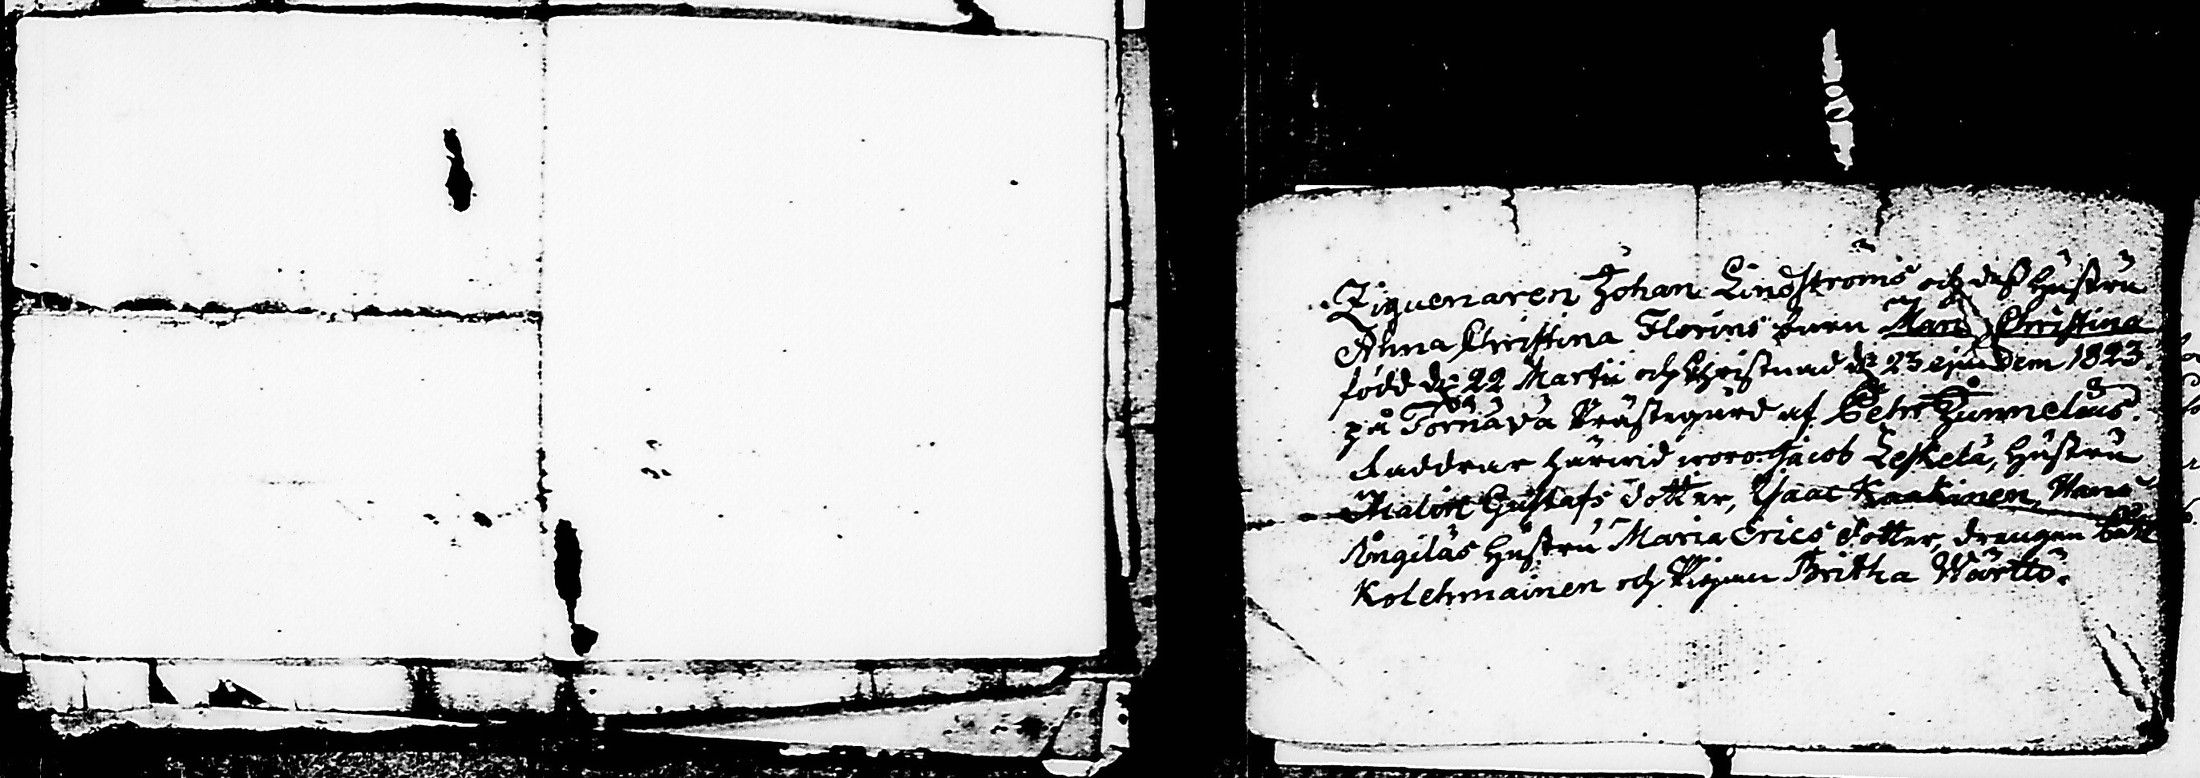 Ziguenaren Johan Lindströms och dess Hustru
Anna Christina Florins barn Maria Christina
född d. 22 Martii och Christnad d. 23 ejusdem 1823
på Törnävä Prästegård af Petr Hunnelius.
Faddrar härwid woro: Jacob Leskelä, Hustru
Malin Gustafs dotter, Isaac Kaakinen, Hans
Ångiläs Hustru Maria Erics dotter, drengen
Kolehmainen och Pigan Britha Wärttö.